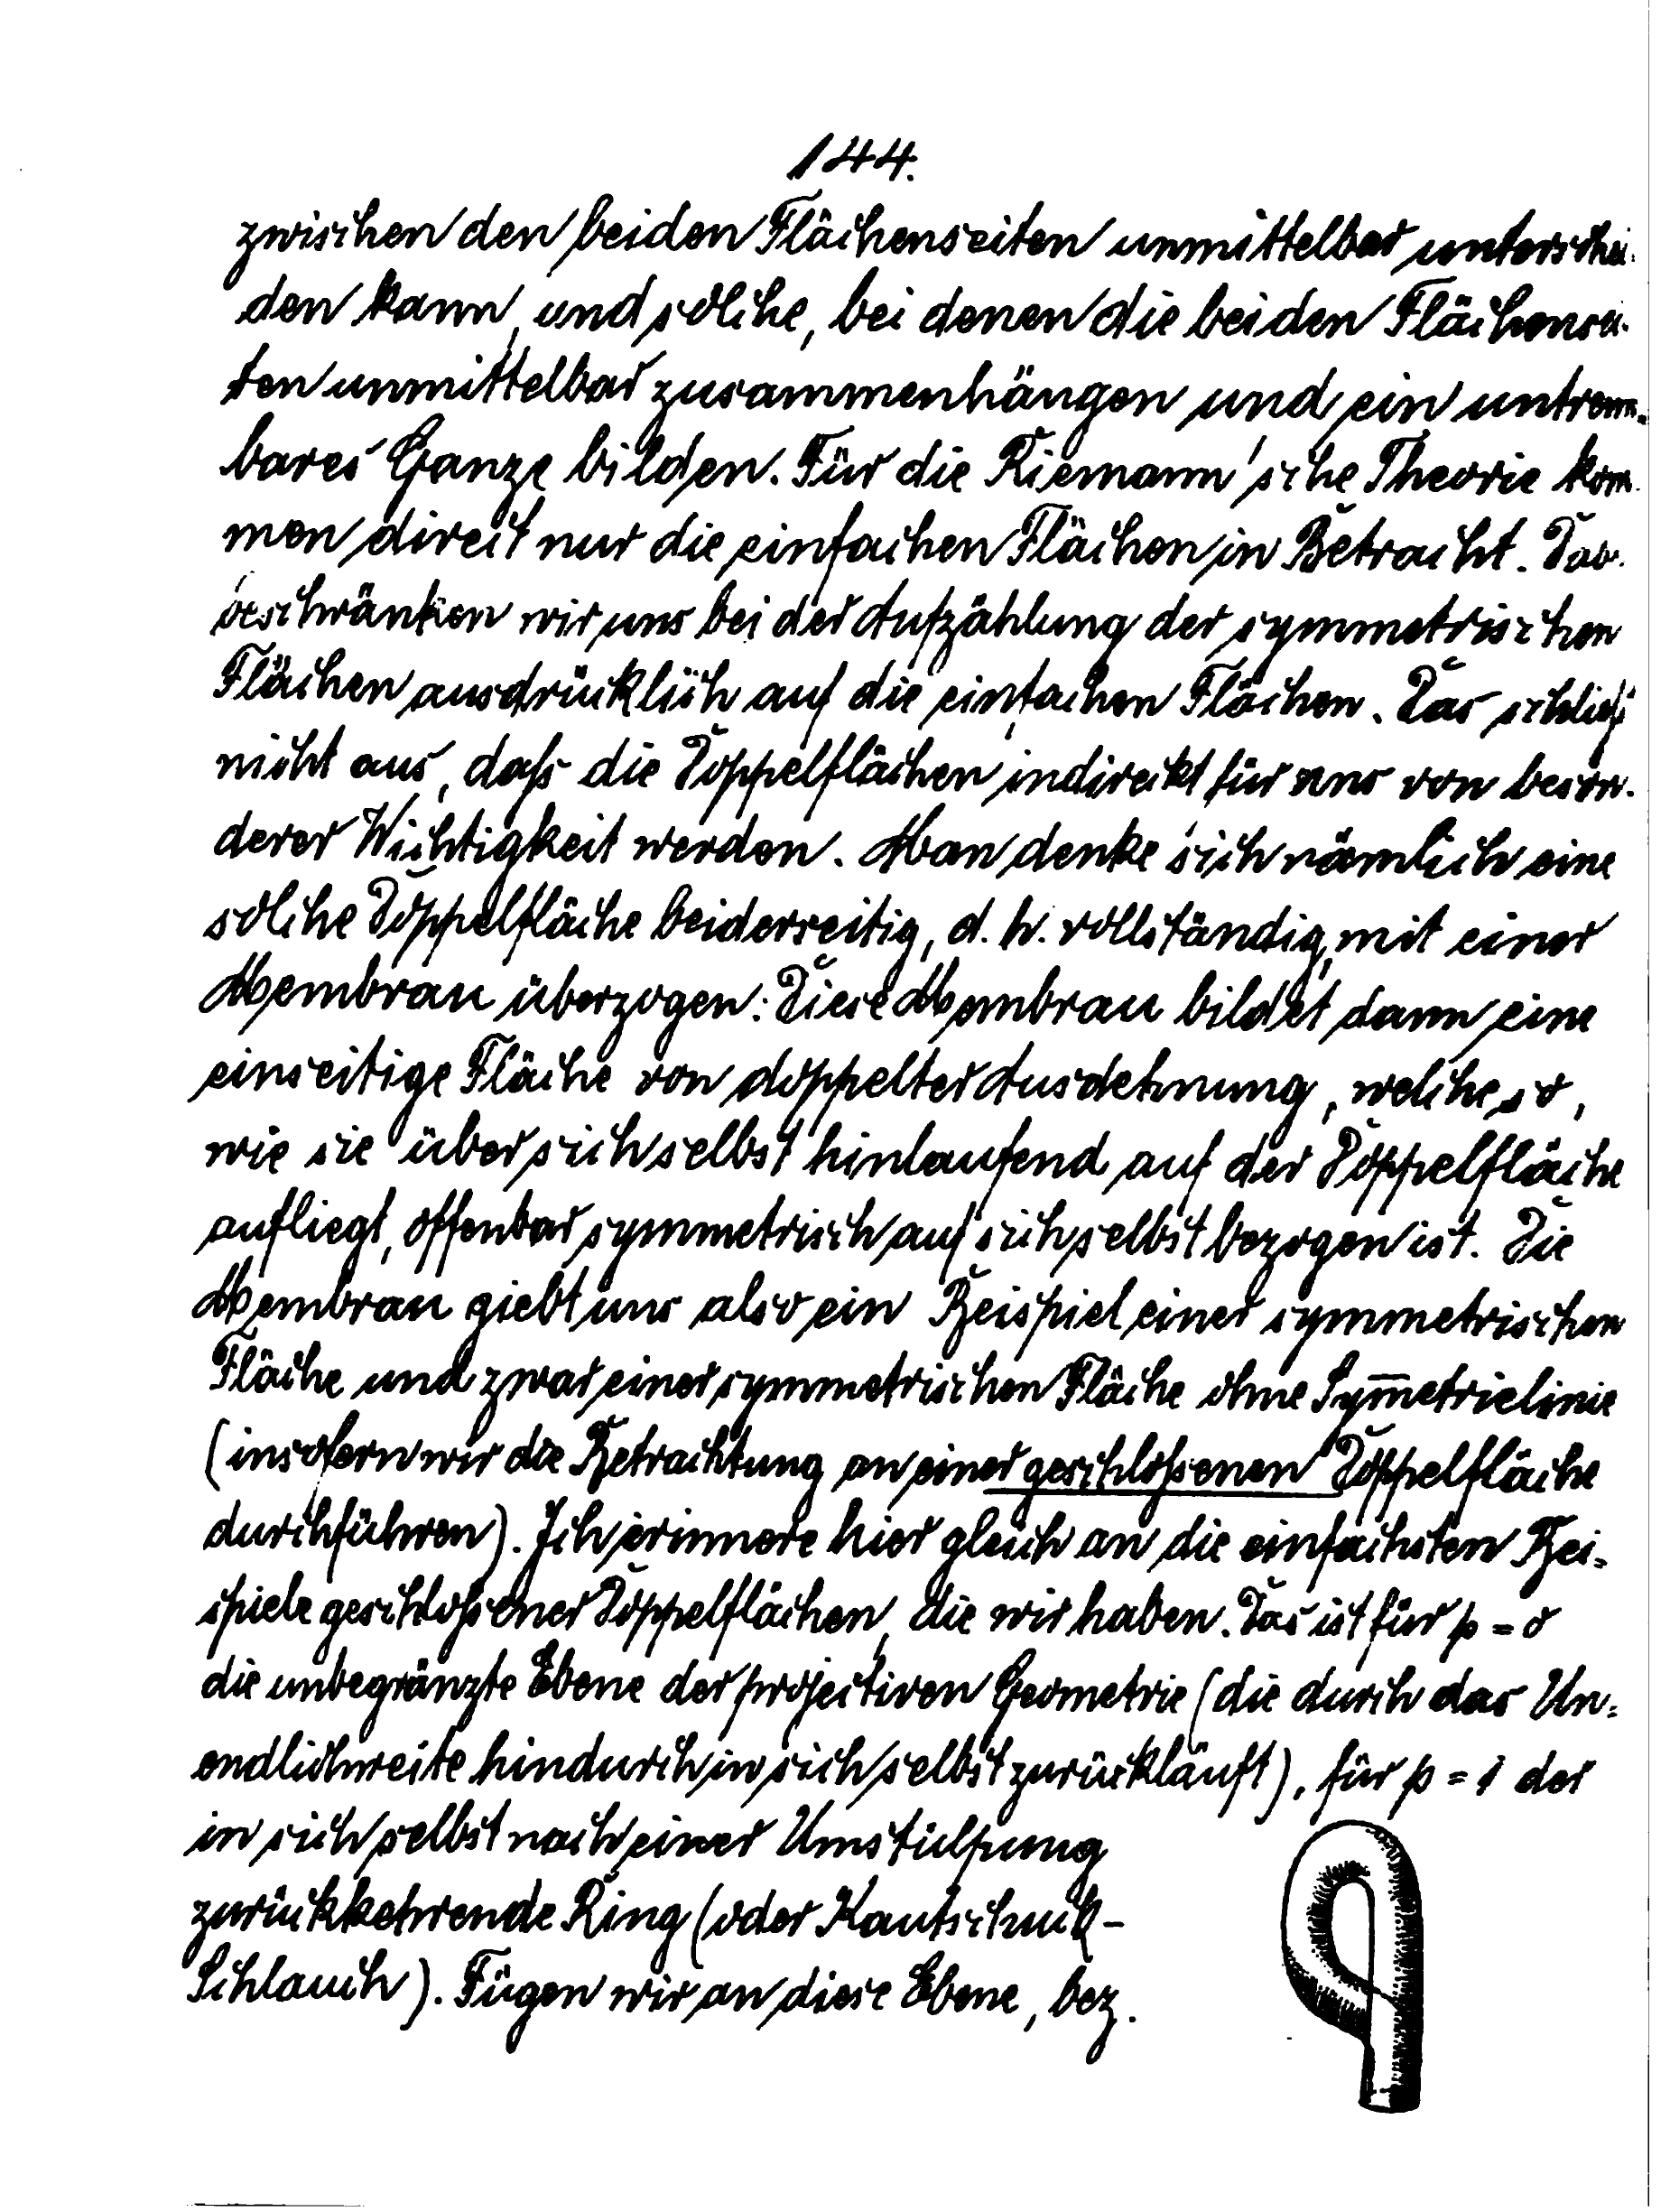 144.
zwischen den beiden Flächenseiten unmittelbar unterschei-
den kann, und solche, bei denen die beiden Flächensei-
ten unmittelbar zusammenhängen und ein untrenn-
bares Ganze bilden. Für die Riemann'sche Theorie kom-
men direct nur die einfachen Flächen in Betracht.
beschränken wir uns bei der Aufzählung der symmetrischen
Flächen ausdrücklich auf die einfachen Flächen. Das schließt
nicht aus, daß die Doppelflächen indirekt für uns von beson-
derer Wichtigkeit werden. Man denke sich nämlich eine
solche Doppelfläche beiderseitig, d. h. vollständig, mit einer
Membran überzogen: Diese Membran bildet dann eine
einseitige Fläche von doppelter Ausdehnung, welche, so,
wie sie über sich selbst hinlaufend auf der Doppelfläche
aufliegt, offenbar symmetrisch auf sich selbst bezogen ist. Die
Membran giebt uns also ein Beispiel einer symmetrischen
Fläche und zwar einer symmetrischen Fläche ohne Sym̅etrielinie
(insofern wir die Betrachtung an einer geschloßenen Doppelfläche
durchführen). Ich erinnere hier gleich an die einfachsten Bei-
spiele geschloßener Doppelflächen, die wir haben. Das ist für p = 0
die unbegränzte Ebene der projectiven Geometrie (die durch das Un-
endlichweite hindurch in sich selbst zurückläuft), für p = 1 der
in sich selbst nach einer Umstülpung
zurückkehrende Ring (oder Kautschuck-
Schlauch). Fügen wir an diese Ebene, bez.